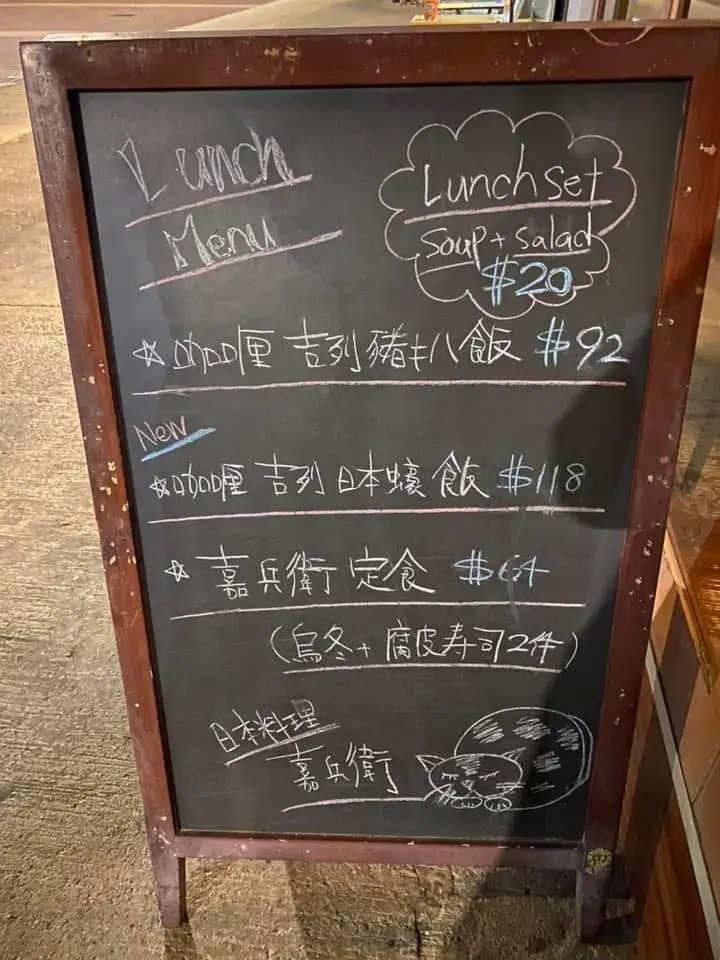 Lunch
Menu
Lunch set
soup + salad
$20
☆咖喱 吉列豬扒飯 $92
New
☆咖喱 吉列日本蠔飯 $118
☆ 嘉兵衛定食 $64
(烏冬+腐皮寿司2件)
日本料理
嘉兵衛